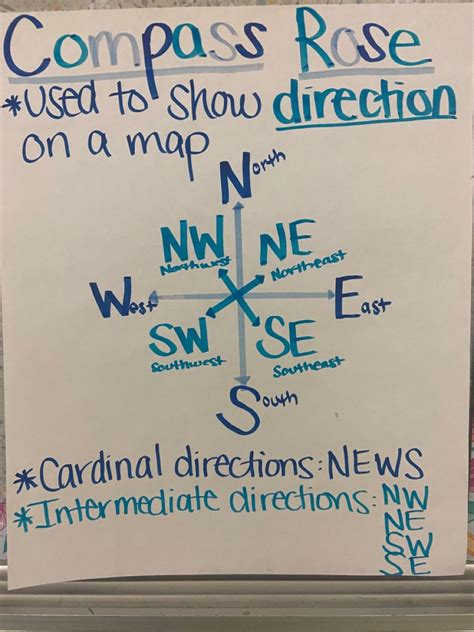 Compass Rose
*Used to show direction
on a map
North
NW NE
Northwest Northeast
West East
SW SE
Southwest Southeast
South
*Cardinal directions: NEWS
*Intermediate directions: NW
NE
SW
SE